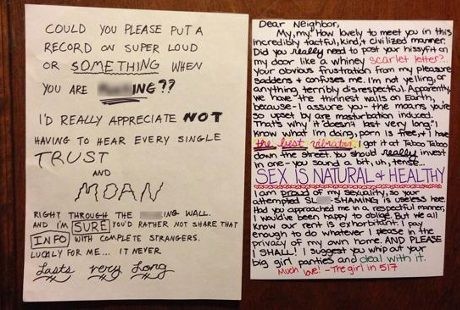 COULD YOU PLEASE PUT A
RECORD ON SUPER LOUD
OR SOMETHING WHEN
YOU ARE ING??
I'D REALLY APPRECIATE NOT
HAVING TO HEAR EVERY SINGLE
TRUST
AND
MOAN
RIGHT THROUGH THE ING WALL.
AND I'M SURE YOU'D RATHER NOT SHARE THAT
INFO WITH COMPLETE STRANGERS.
LUCKLY FOR ME... IT NEVER
Lasts very Long
Dear Neighbor,
My, my, How lovely to meet you in this
incredibly tactful, kind, & civilized manner.
Did you really need to post your hissyfit on
my door like a whiney scarlet letter?
your obvious frustration from my pleasure
saddens & confuses me. I'm not yelling, or
anything terribly disrespectful. Apparently,
we have the thinnest walls on Earth,
because - I assure you - the moans you're
so upset by are masturbation induced.
That's why it doesn't last very long!
Know what I'm doing, porn is free, & I have
the best vibrator. I got it at Taboo Taboo
down the street. You should really invest
in one - you sound a bit, uh, tense...
SEX IS NATURAL & HEALTHY
I am proud of my sexuality, so your
attempted SHAMING is useless here.
Had you approached me in a respectful manner,
I would've been happy to oblige. But we all
know our rent is exhorbitant & I pay
enough to do whatever I please in the
privacy of my own home. AND PLEASE
I SHALL! I suggest you whip out your
big girl panties and deal with it.
Much love! - The girl in 517